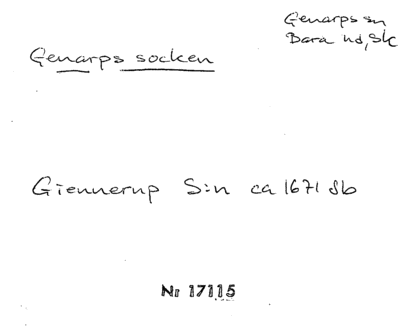 Genarps sn
Bara hd, Sk
Genarps socken
Giennerup S:n ca 1671 Jb
Nr 17115